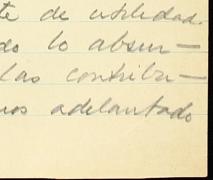 te de utilidad.
do lo absur—
las contribu—
nos adelantado